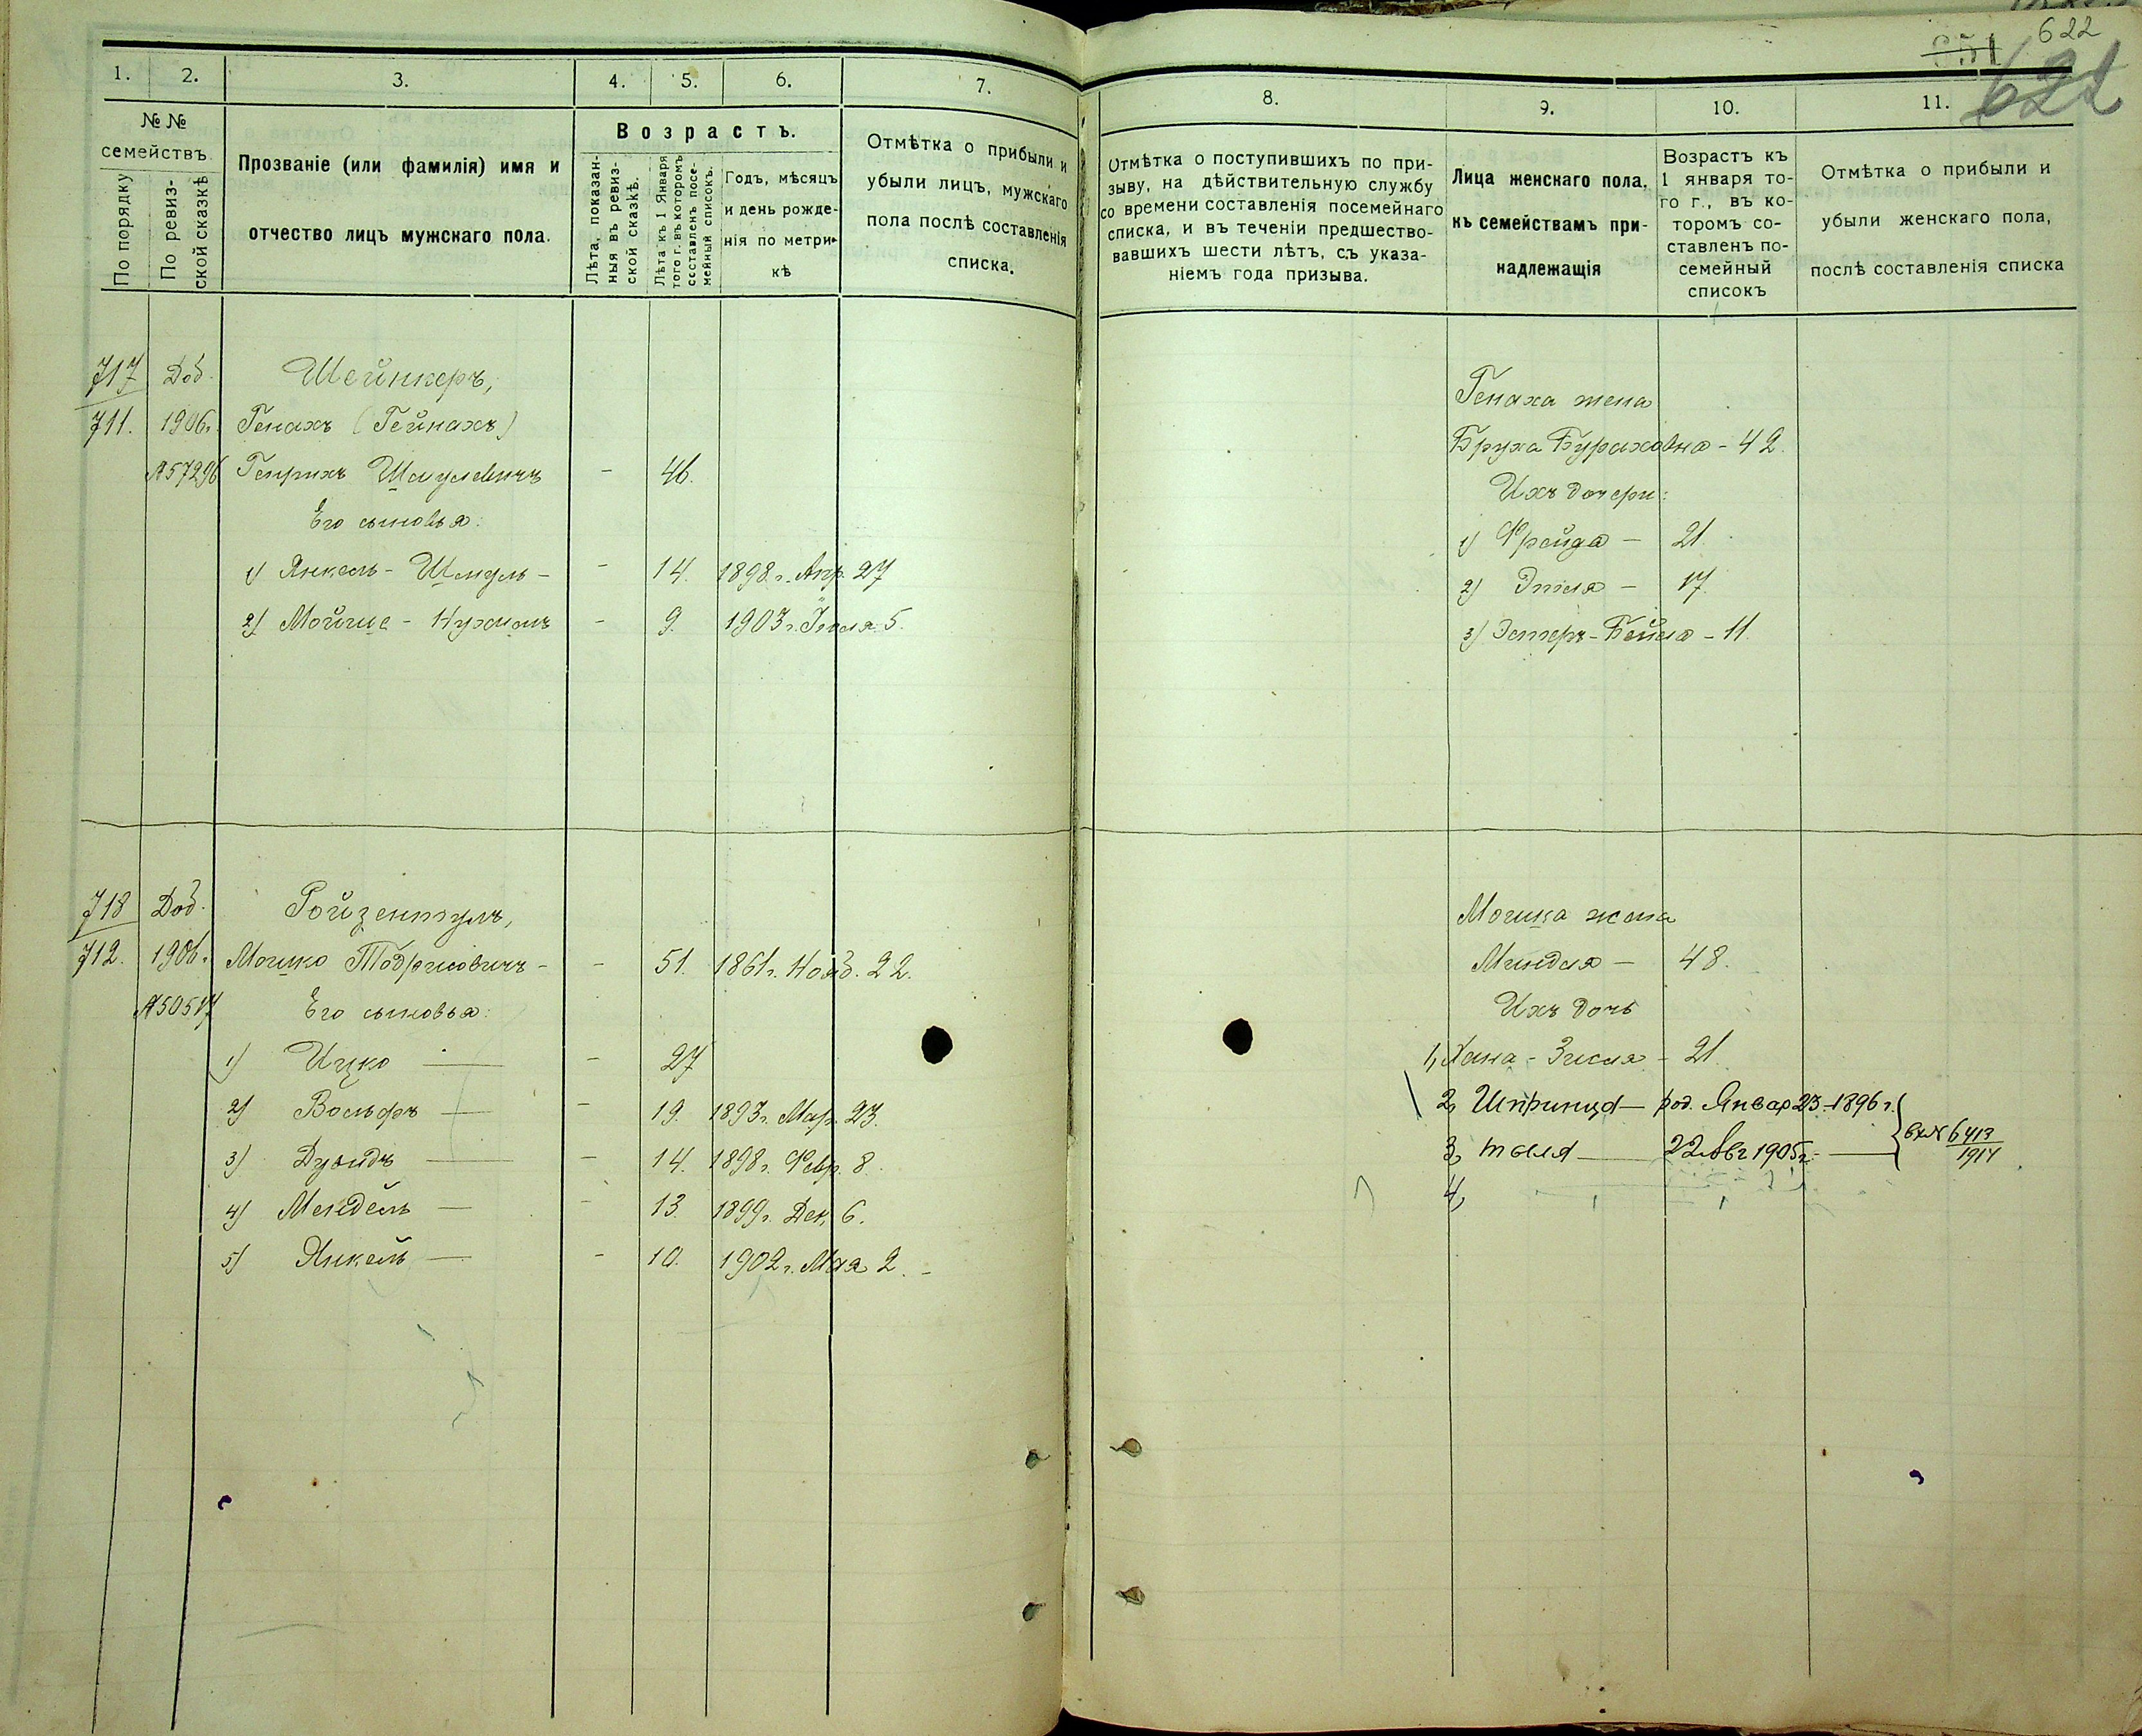 622
651
622
1. 2. 3. 4. 5. 6. 7.
№№ семействъ
По порядку
По ревизской сказкѣ
Прозваніе (или фамилія) имя и
отчество лицъ мужскаго пола.
Возрастъ.
Лѣта, показан-
ныя въ ревиз-
ской сказкѣ.
Лѣта къ 1 Января
того г. въ которомъ
составленъ посе-
мейный списокъ.
Годъ, мѣсяцъ
и день рожде-
нія по метри-
кѣ
Отмѣтка о прибыли и
убыли лицъ, мужскаго
пола послѣ составленія
списка.
8. 9. 10. 11.
Отмѣтка о поступившихъ по при-
зыву, на дѣйствительную службу
со времени составленія посемейнаго
списка, и въ теченіи предшество-
вавшихъ шести лѣтъ, съ указа-
ніемъ года призыва.
Лица женскаго пола,
къ семействамъ при-
надлежащія
Возрастъ къ
1 января то-
го г., въ ко-
торомъ со-
ставленъ по-
семейный
списокъ
Отмѣтка о прибыли и
убыли женскаго пола,
послѣ составленія списка
717 Доб. Шейнкеръ,
711. 1906г. Генахъ (Гейнахъ)
№57296 Генрихъ Шмулевичъ - 46.
Его сыновья:
1) Янкель-Шмуль - - 14. 1898 г. Апр. 27
2) Мойше-Нухимъ - 9. 1903 г. Іюля 5.
Генаха жена
Бруха Бураховна - 42.
Ихъ дочери:
1) Фрейда - 21.
2) Этля - 17.
3) Эстеръ-Бейла - 11.
718 Доб. Ройзентулъ,
712. 1906г. Мошко Тодрисовичъ - - 51. 1861 г. Нояб. 22.
№50517 Его сыновья:
1) Ицко - - 27
2) Вольфъ - - 19. 1893 г. Мар. 23.
3) Дувидъ - - 14. 1898 г. Февр. 8.
4) Мендель - - 13. 1899 г. Дек. 6.
5) Янкель - - 10. 1902 г. Мая 2.
Мошка жена
Миндля - 48.
Ихъ дочь
1, Хана-Зисля - 21.
2, Шпринца - род. Январ 23-1896 г.
3, тыля - 22 Авг 1905 г. - вх № 6413/1914
4,